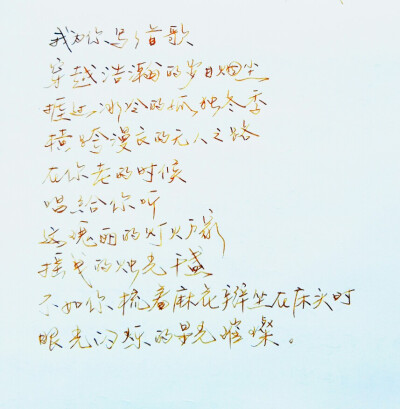 我为你写首歌
穿越浩瀚的岁月烟尘
挺过冰冷的孤独冬季
横跨漫长的无人之路
在你老的时候
唱給你听
这瑰丽的灯火户影
摇曳的烛光千盏
不如你梳着麻花辫坐在床头时
眼光闪烁的星光璀璨。